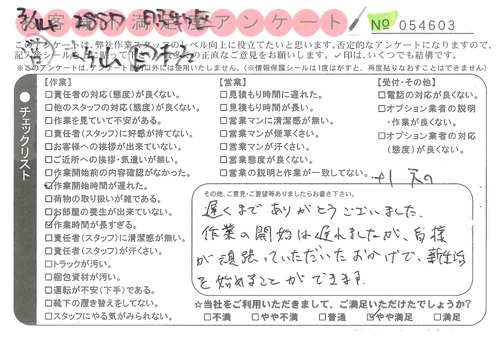 お客様不満足度アンケート
No 054603
このアンケートは、弊社作業スタッフのレベル向上に役立てたいと思います。否定的なアンケートになりますので、
【作業】
□責任者の対応(態度)が良くない。
□他のスタッフの対応(態度)が良くない。
□作業を見ていて不安がある。
□責任者(スタッフ)に好感が持てない。
□お客様への挨拶が出来ていない。
□ご近所への挨拶・気遣いが無い。
□作業開始前の内容確認がなかった。
☑作業開始時間が遅れた。
□荷物の取り扱いが雑である。
□お部屋の養生が出来ていない。
☑作業時間が長すぎる。
□責任者(スタッフ)に清潔感が無い。
□責任者(スタッフ)が汗くさい。
□トラックが汚い。
□梱包資材が汚い。
□運転が不安(下手)である。
□靴下の履き替えをしてない。
□スタッフにやる気がみられない。
【営業】
□見積もり時間に遅れた。
□見積もり時間が長い。
□営業マンに清潔感が無い。
□営業マンが煙草くさい。
□営業マンが汗くさい。
□営業態度が良くない。
□営業の説明と作業が一致してない。
【受付・その他】
□電話の対応が良くない。
□オプション業者の説明
・作業が良くない。
□オプション業者の対応
(態度)が良くない。
チェックリスト
その他、ご意見・ご要望等ありましたらお書き下さい。
遅くまでありがとうございました。
作業の開始は遅れましたが、皆様
が頑張っていただいたおかげで、新生活
を始めることができます。
☆当社をご利用いただきまして、ご満足いただけたでしょうか?
□不満 □やや不満 □普通 ☑やや満足 □満足